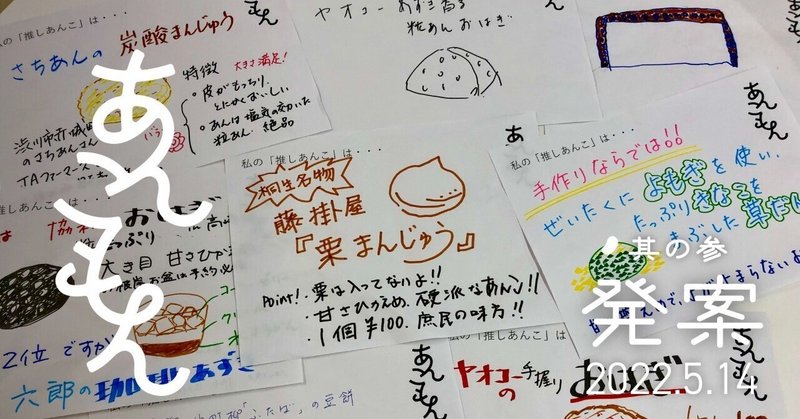 私の「推しあんこ」は・・・
さちあんの 炭酸まんじゅう
特徴
大きさ満足!
・皮がもっちり、
とにかくおいしい
・あんは塩気の効いた
粒あん 絶品
渋川市
のさちあんさん
JAファーマーズ
ヤオコー あずき香る
粒あんおはぎ
あんもん
私の「推しあんこ」は・・・
おはぎ
たっぷり
大き目 甘さひかえ
お盆は予約必
2位 ですが
六郎の珈琲あずき
あ
私の「推しあんこ」は・・・
桐生名物
藤掛屋
『栗まんじゅう』
Point!・栗は入ってないよ!!
・甘さひかえめ、硬派なあんこ!!
・1個¥100. 庶民の味方!!
あんもん
私の「推しあんこ」は・・・
手作りならでは!!
ぜいたくに よもぎを使い、
たっぷりきなこを
まぶした 草だん
あんもん
私の「推しあんこ」は
ふたば」の豆餅
あんもん
私の「推しあんこ」は
ヤオコーの手握り
おはぎ
あんもん
其の参
発案
2022.5.14